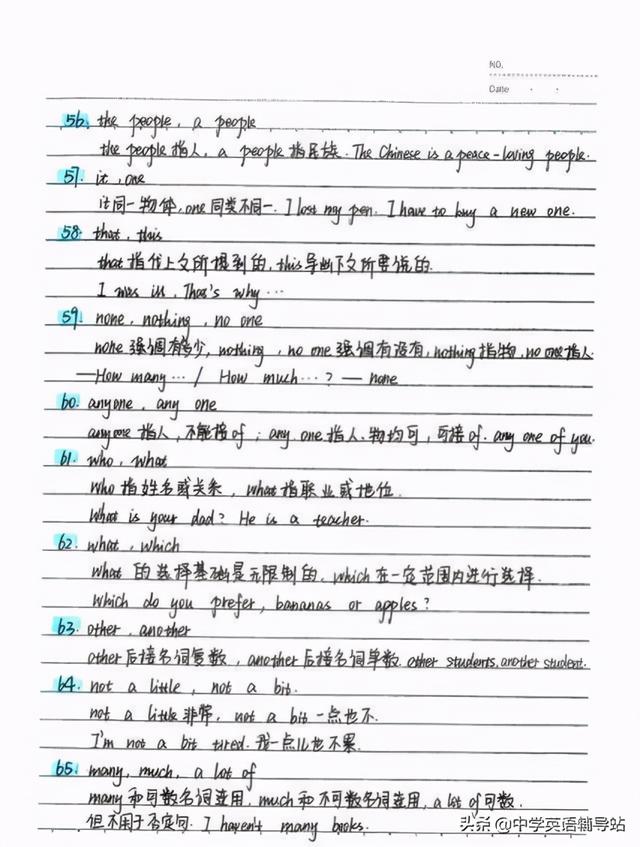 NO.
Date
56. the people, a people
the people 指人, a people 指民族. The Chinese is a peace-loving people.
57. it, one
it 同一物体, one 同类不同一. I lost my pen. I have to buy a new one.
58. that, this
that 指代上文所提到的, this 导出下文所要说的.
I was ill. That's why …
59. none, nothing, no one
none 强调有多少, nothing, no one 强调有没有, nothing 指物, no one 指人.
—How many… / How much…? — none
60. anyone, any one
anyone 指人, 不能接 of; any one 指人、物均可, 可接 of. any one of you.
61. who, what
who 指姓名或关系, what 指职业或地位.
What is your dad? He is a teacher.
62. what, which
what 的选择基础是无限制的, which 在一定范围内进行选择.
Which do you prefer, bananas or apples?
63. other, another
other 后接名词复数, another 后接名词单数. other students, another student.
64. not a little, not a bit.
not a little 非常, not a bit 一点也不.
I'm not a bit tired. 我一点儿也不累.
65. many, much, a lot of
many 和可数名词连用, much 和不可数名词连用, a lot of 可数.
但不用于否定句. I haven't many books.
头条 @中学英语辅导站